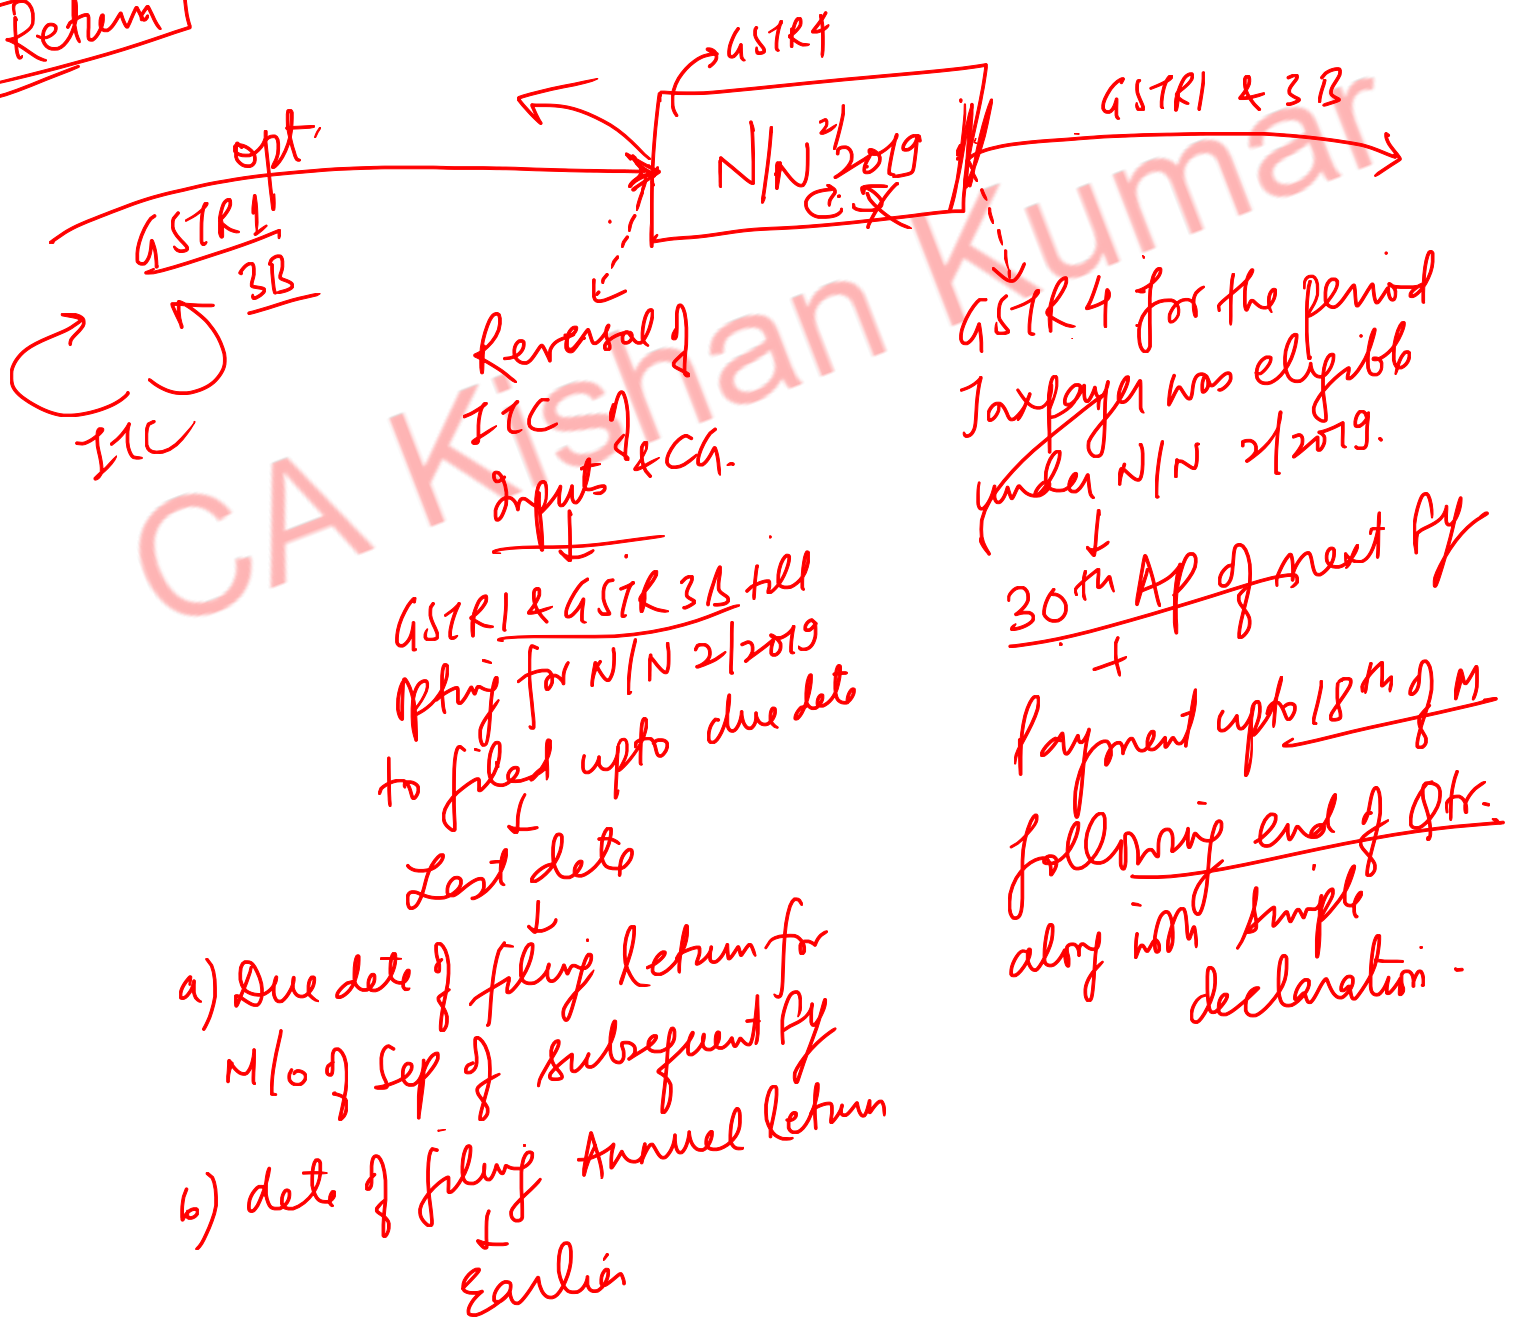 Return
GSTR4
opt
N/N 2/2019
GSTR1 & 3B
GSTR1
3B
ITC
Reversal of
ITC of
Inputs & CG.
GSTR1 & GSTR 3B till
opting for N/N 2/2019
to filed upto due date
Last date
a) Due date of filing return for
M/o of Sep of subsequent fy
b) date of filing Annual return
Earlier
GSTR 4 for the period
Taxpayer was eligible
under N/N 2/2019.
30th Ap of next fy
+
Payment upto 18th of M
following end of Qtr.
along with simple
declaration.
CA Kishan Kumar